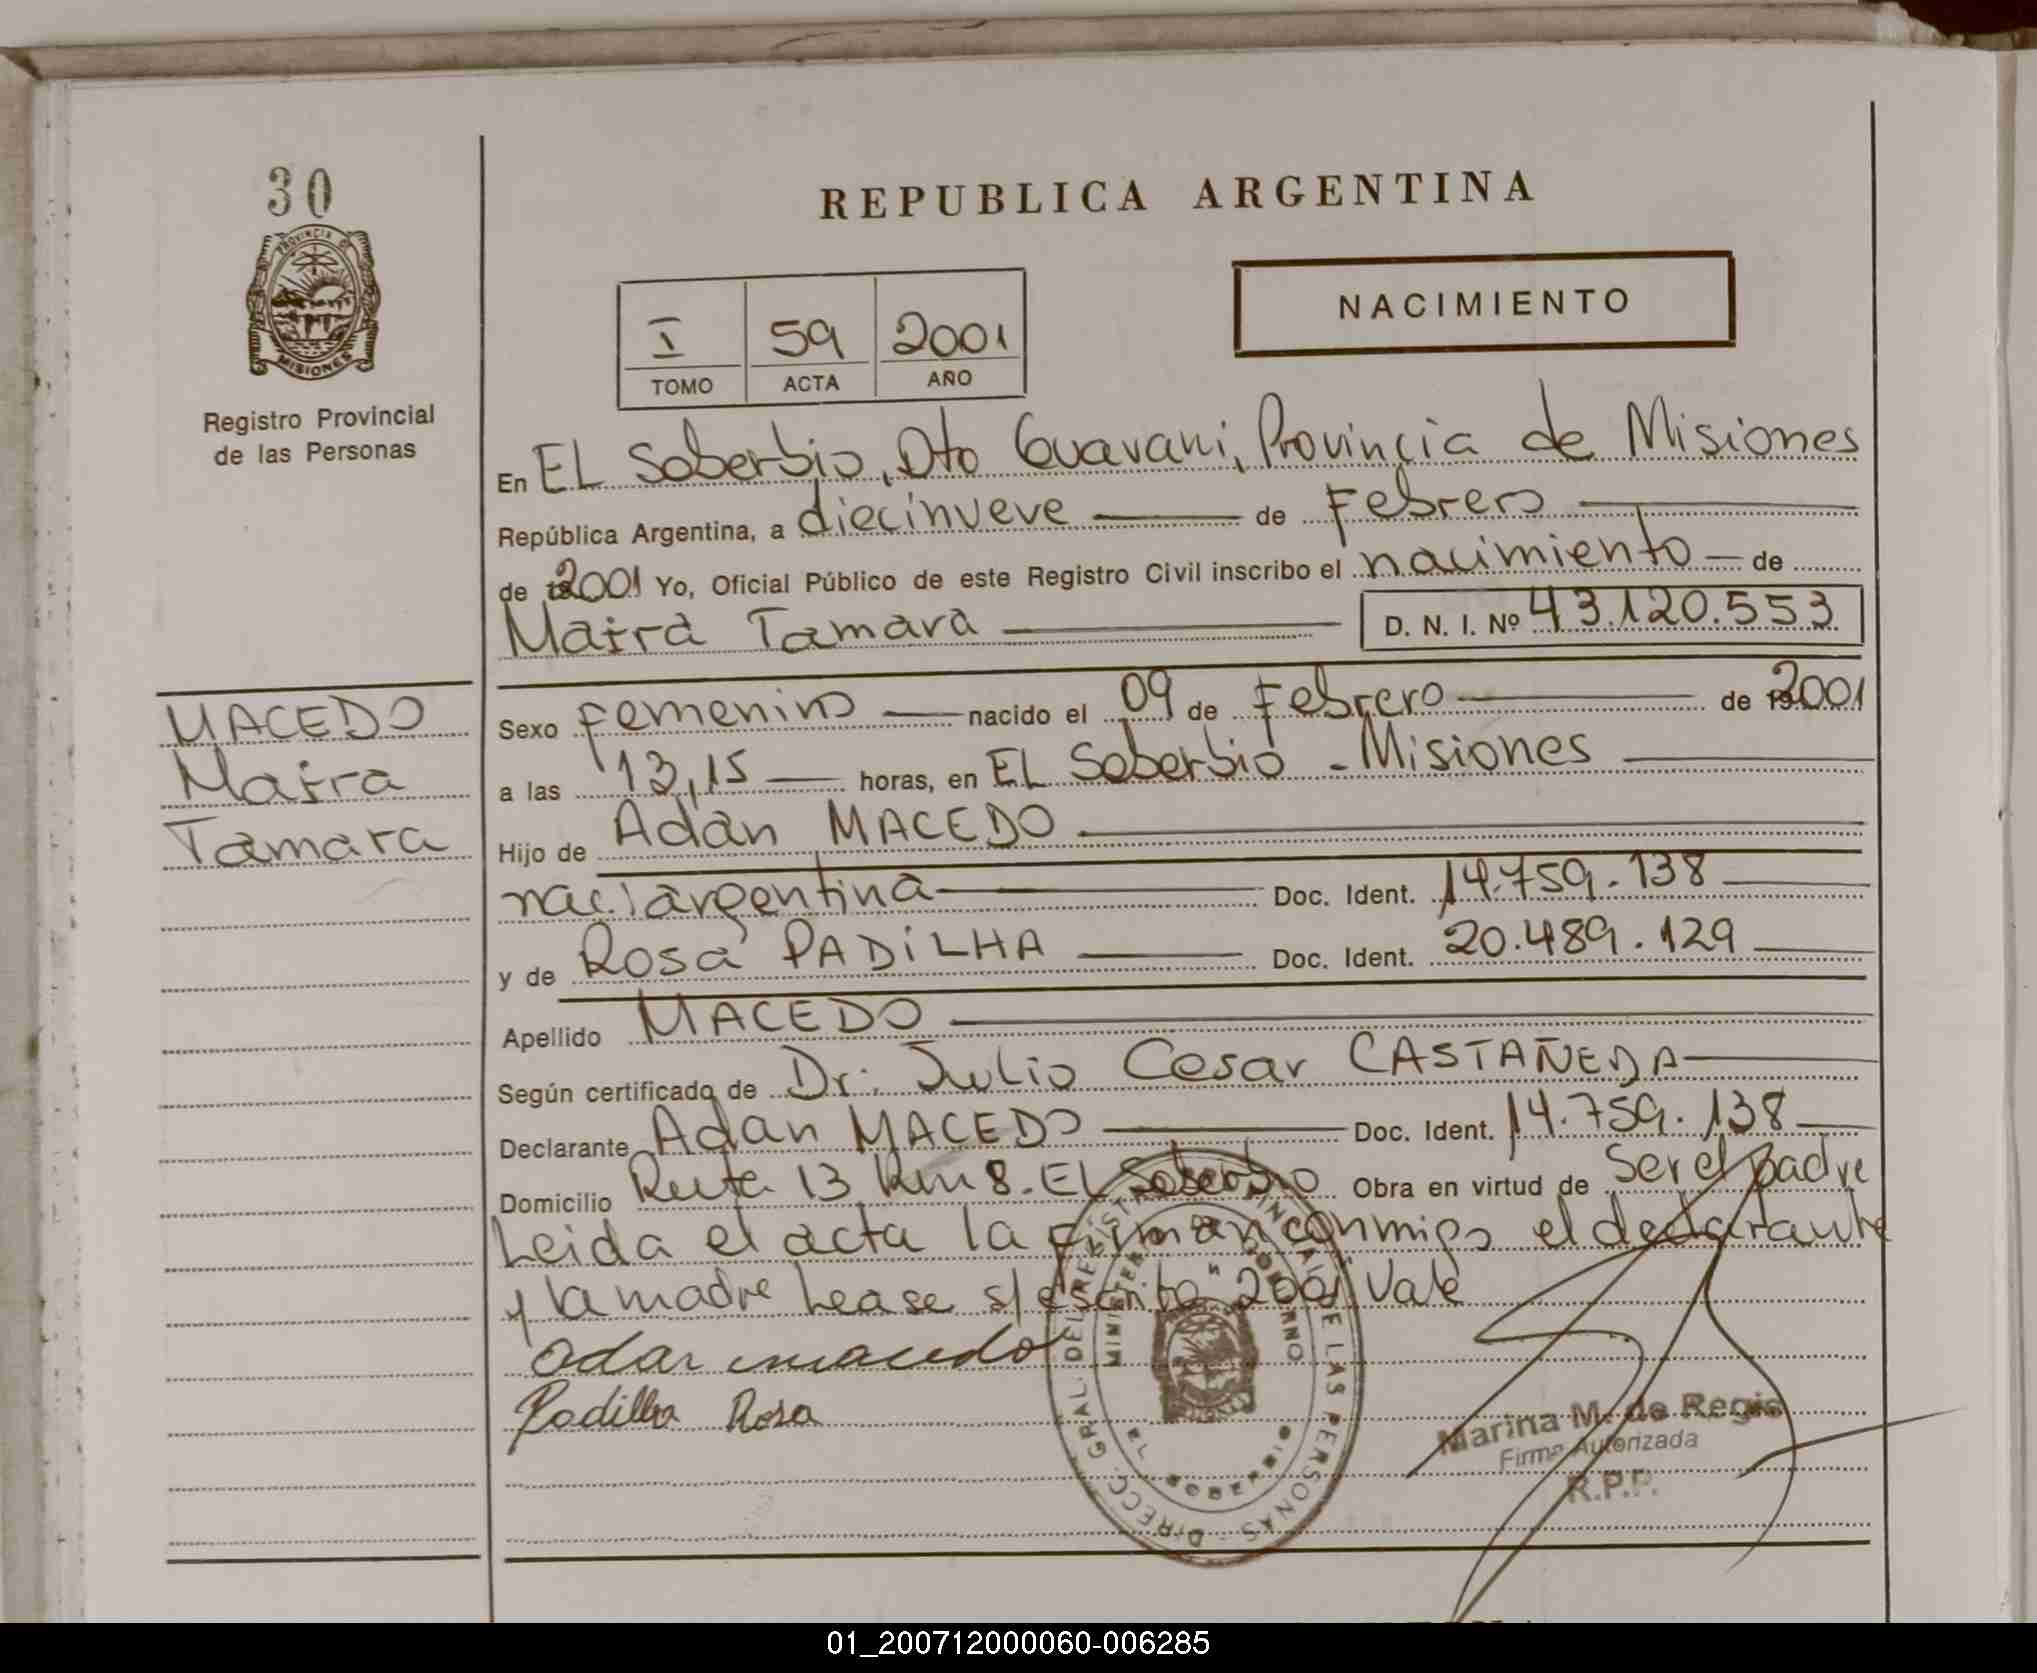 30
PROVINCIA DE
MISIONES
Registro Provincial
de las Personas
REPUBLICA ARGENTINA
NACIMIENTO
I 59 2001
TOMO ACTA AÑO
En EL Soberbio, Dto Guarani, Provincia de Misiones
República Argentina, a diecinueve de Febrero
de 2001 Yo, Oficial Público de este Registro Civil inscribo el nacimiento de
Maira Tamara D. N. I. Nº 43.120.553
MACEDO
Maira
Tamara
Sexo Femenino nacido el 09 de Febrero de 2001
a las 13,15 horas, en EL Soberbio - Misiones
Hijo de Adán MACEDO
nac. argentina Doc. Ident. 14.759.138
y de Rosa PADILHA Doc. Ident. 20.489.129
Apellido MACEDO
Según certificado de Dr. Julio Cesar CASTAÑEDA
Declarante Adan MACEDO Doc. Ident. 14.759.138
Domicilio Ruta 13 Km 8. EL Soberbio Obra en virtud de Ser el padre
Leida el acta la firman conmigo el declarante
y la madre Lease s/escrito "2001 Vale
adan macedo
Padilha Rosa
DIRECC. GRAL. DEL REGISTRO PROVINCIAL DE LAS PERSONAS
MINISTERIO DE GOBIERNO
EL SOBERBIO
Marina M. de Regis
Firma Autorizada
R.P.P.
01_200712000060-006285